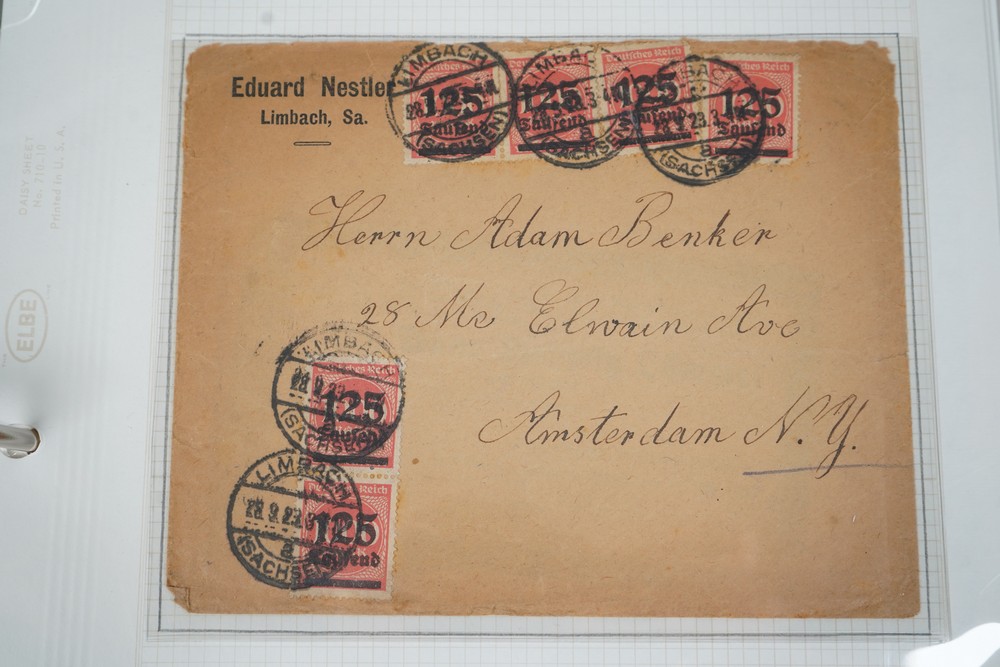 Eduard Nestler
Limbach, Sa.
Deutsches Reich
125 Tausend
125 Tausend
125 Tausend
125 Tausend
LIMBACH
(SACHSEN)
a
Herrn Adam Benker
28 Mc Elwain Ave
Amsterdam N.Y.
LIMBACH
(SACHSEN)
Deutsches Reich
125
Tausend
LIMBACH
28.9.23
a
(SACHSEN)
Reich
125
Tausend
DAISY SHEET
No. 710.10
Printed in U. S. A.
ELBE